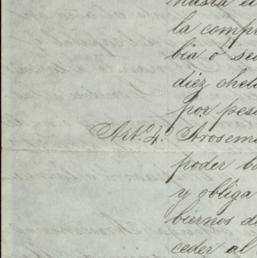 hasta el
la compr
bia o se
diez chel
por pes
Art.º 4.º Arosem
poder b
y obliga
biernos d
ceder al